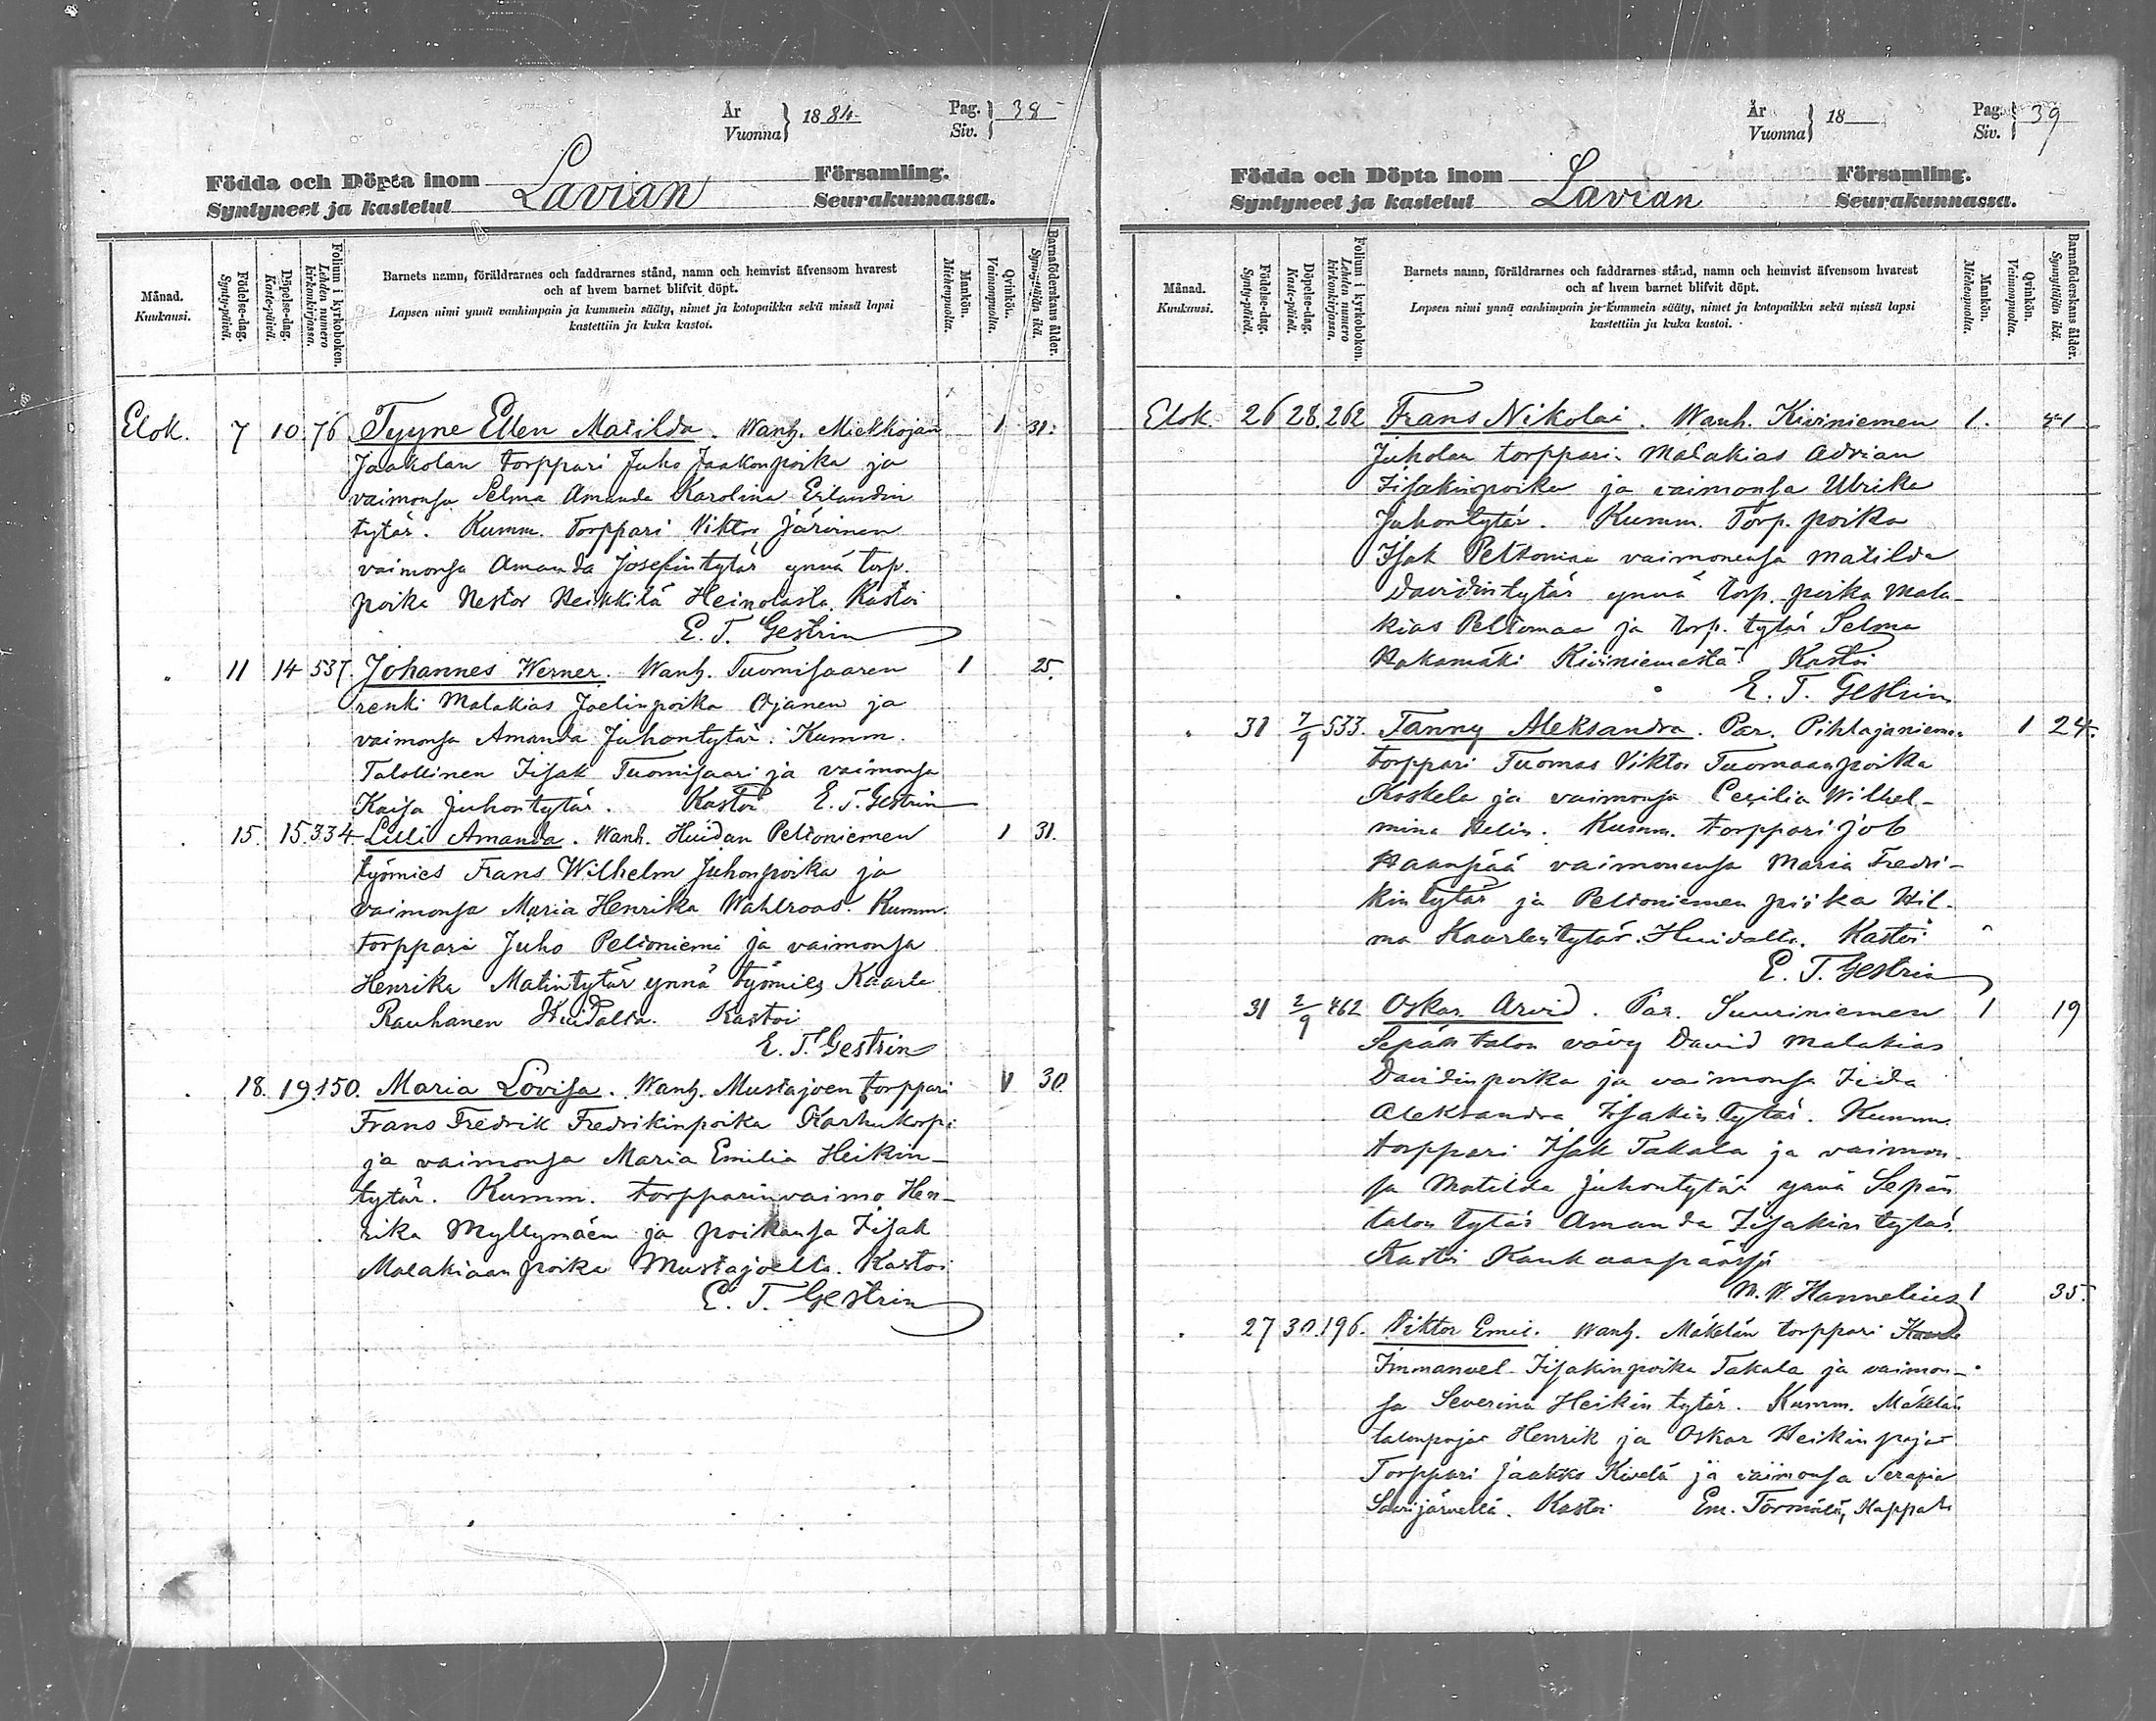 År
Vuonna } 1884.
Pag.
Siv. } 38
Födda och Döpta inom Lavian Församling.
Syntyneet ja kastetut Seurakunnassa.
Månad.
Kuukausi.
Födelse-dag.
Synty-päivä.
Döpelse-dag.
Kaste-päivä.
Folium i kyrkoboken.
Lehden numero
kirkonkirjassa.
Barnets namn, föräldrarnes och faddrarnes stånd, namn och hemvist äfvensom hvarest
och af hvem barnet blifvit döpt.
Lapsen nimi ynnä vanhimpain ja kummein sääty, nimet ja kotopaikka sekä missä lapsi
kastettiin ja kuka kastoi.
Mankön.
Miehenpuolta.
Qvinkön.
Vaimonpuolta.
Barnaföderskans ålder.
Synnyttäjän ikä.
Elok. 7 10 76 Tyyne Ellen Matilda. Wanh. Mielhojan 1 31.
Jaakolan torppari Juho Jaakonpoika ja
vaimonsa Selma Amanda Karolina Erlandin
tytär. Kumm. Torppari Viktor Järvinen
vaimonsa Amanda Josefintytär ynnä torp.
poika Nestor Heikkilä Heinolasta. Kastoi
E. T. Gestrin
" 11 14 537. Johannes Werner. Wanh. Tuomisaaren 1 25.
renki Malakias Joelinpoika Ojanen ja
vaimonsa Amanda Juhontytär. Kumm.
Talollinen Iisak Tuomisaari ja vaimonsa
Kaisa Juhontytär. Kastoi E. T. Gestrin
" 15. 15. 334 Lilli Amanda. Wanh. Huidan Peltoniemen 1 31.
työmies Frans Wilhelm Juhonpoika ja
vaimonsa Maria Henrika Wahlroos. Kumm.
torppari Juho Peltoniemi ja vaimonsa
Henrika Matintytär ynnä työmies Kaarle
Rauhanen Huidalta. Kastoi
E. T. Gestrin
" 18. 19. 150. Maria Lovisa. Wanh. Mustajoen torppari 1 30.
Frans Fredrik Fredrikinpoika Karhukorpi
ja vaimonsa Maria Emilia Heikin-
tytär. Kumm. torpparinvaimo Hen-
rika Myllymäen ja poikansa Iisak
Malakiaanpoika Mustajoelta. Kastoi
E. T. Gestrin
År
Vuonna } 18
Pag.
Siv. } 39
Födda och Döpta inom Lavian Församling.
Syntyneet ja kastetut Seurakunnassa.
Månad.
Kuukausi.
Födelse-dag.
Synty-päivä.
Döpelse-dag.
Kaste-päivä.
Folium i kyrkoboken.
Lehden numero
kirkonkirjassa.
Barnets namn, föräldrarnes och faddrarnes stånd, namn och hemvist äfvensom hvarest
och af hvem barnet blifvit döpt.
Lapsen nimi ynnä vanhimpain ja kummein sääty, nimet ja kotopaikka sekä missä lapsi
kastettiin ja kuka kastoi.
Mankön.
Miehenpuolta.
Qvinkön.
Vaimonpuolta.
Barnaföderskans ålder.
Synnyttäjän ikä.
Elok. 26 28. 262 Frans Nikolai. Wanh. Kiviniemen 1.
Juholan torppari Malakias Adrian
Iisakinpoika ja vaimonsa Ulrika
Juhontytär. Kumm. Torp. poika
Isak Peltomaa vaimonensa Matilda
Davidintytär ynnä torp. poika Mala-
kias Peltomaa ja torp. tytär Selma
Hakamäki Kiviniemestä. Kastoi
E. T. Gestrin
" 31 7/9 533. Fanny Aleksandra. Par. Pihlajaniemen 1 24.
torppari Tuomas Viktor Tuomaanpoika
Koskela ja vaimonsa Cecilia Wilhel-
mina Helin. Kumm. torppari Job
Haanpää vaimonensa Maria Fredri-
kintytär ja Peltoniemen piika Hil-
ma Kaarlentytär Huidalta. Kastoi
E. T. Gestrin
31 2/9 462 Oskar Arvid. Par. Suuriniemen 1 19
Sepän talon vävy David Malakias
Davidinpoika ja vaimonsa Iida
Aleksandra Iisakin tytär. Kumm.
torppari Isak Takala ja vaimon-
sa Matilda Juhontytär ynnä Sepän
talon tytär Amanda Iisakin tytär.
Kastoi Kankaanpäässä
M. W. Hannelius 1 35.
" 27 30. 196. Viktor Emil. Wanh. Mäkelän torppari
Immanuel Iisakinpoika Takala ja vaimon-
sa Severina Heikin tytär. Kumm. Mäkelän
talonpojat Henrik ja Oskar Heikin pojat
Torppari Jaakko Kivelä ja vaimonsa Serafia
Saarijärveltä. Kastoi Em. Törmälä, Kappal.